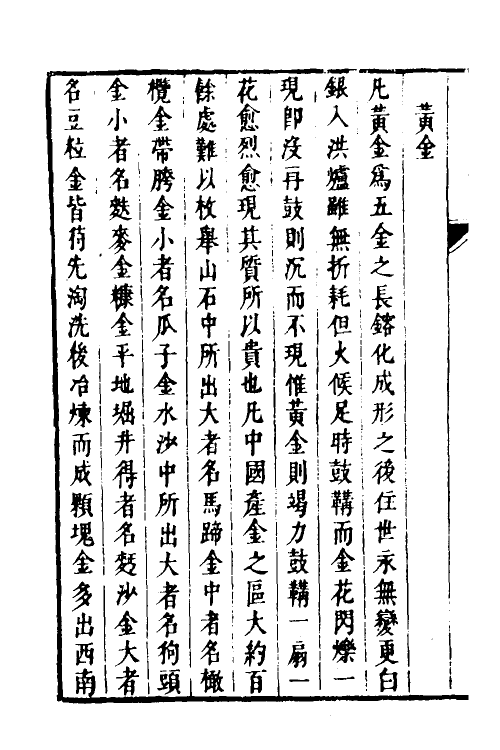 黃金
凡黃金爲五金之長鎔化成形之後住世永無變更白
銀入洪爐雖無折耗但火候足時鼓鞲而金花閃爍一
現即沒再鼓則沉而不現惟黃金則竭力鼓鞲一扇一
花愈烈愈現其質所以貴也凡中國產金之區大約百
餘處難以枚舉山石中所出大者名馬蹄金中者名橄
欖金帶胯金小者名瓜子金水沙中所出大者名狗頭
金小者名麩麥金糠金平地堀井得者名麪沙金大者
名豆粒金皆待先淘洗後冶煉而成顆塊金多出西南